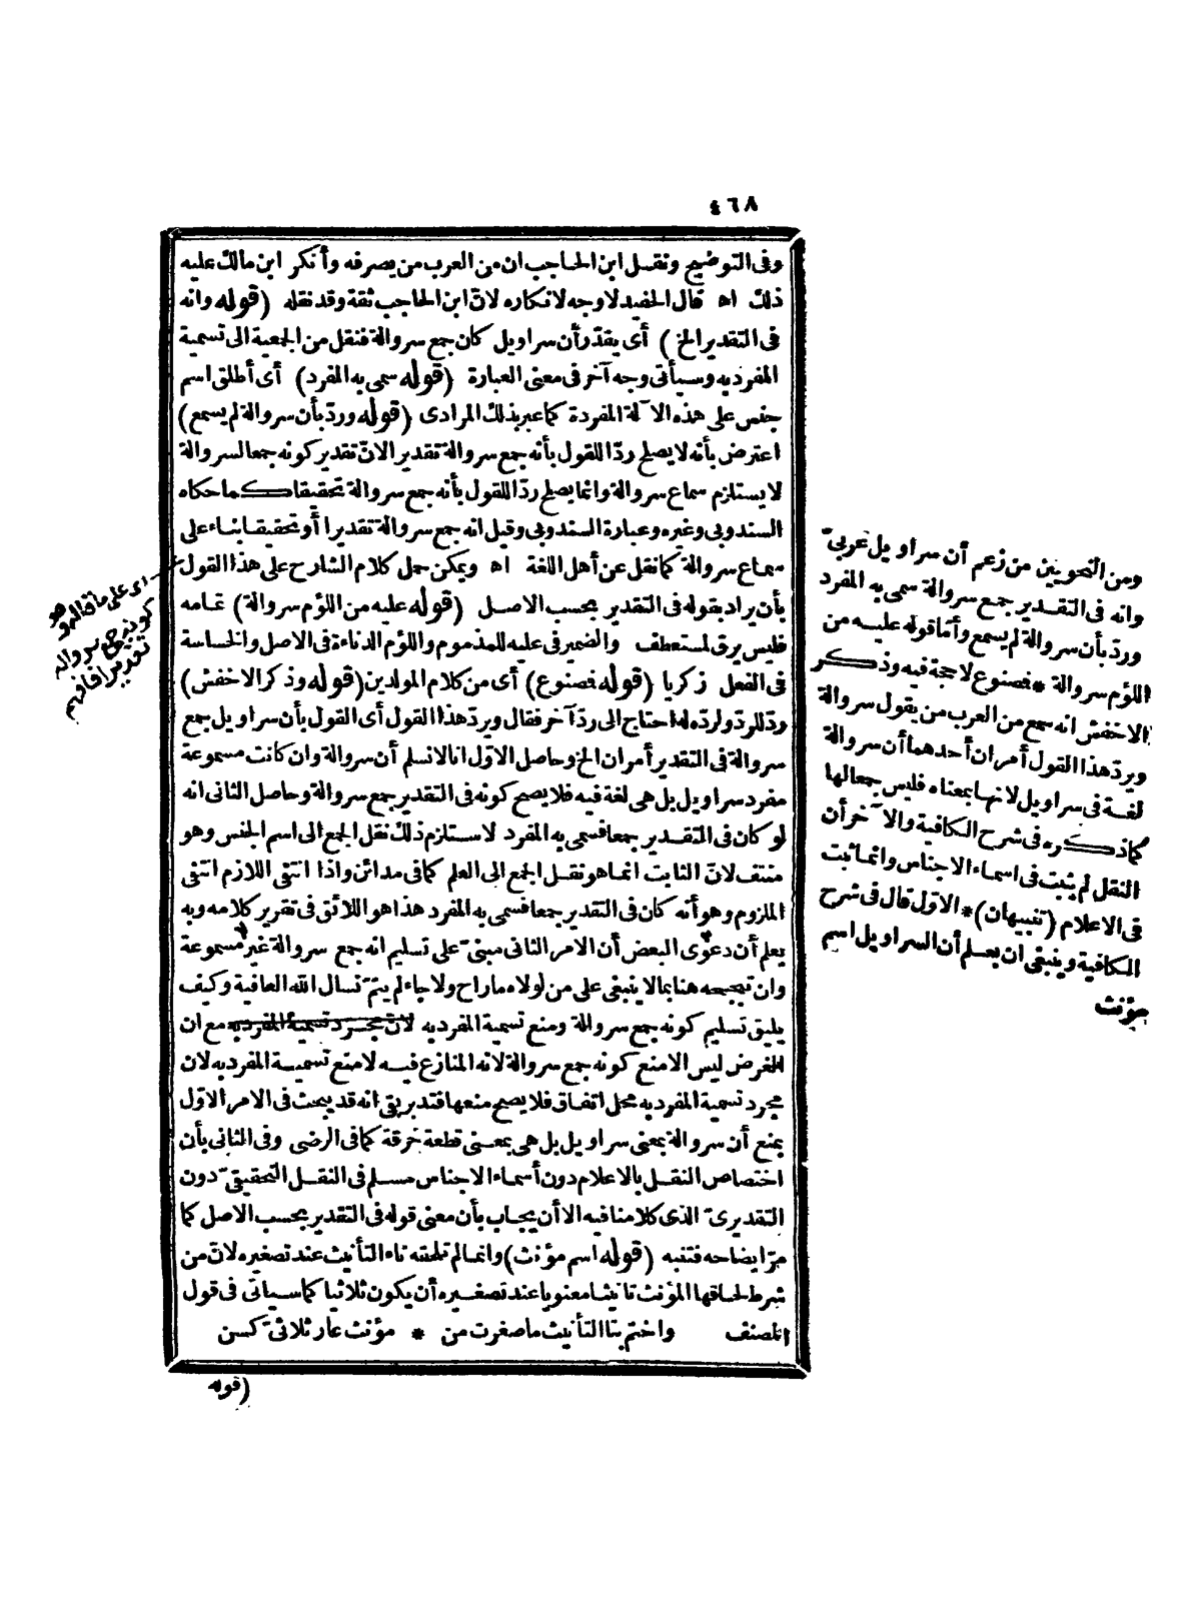 ٤٦٨
وفى التوضيح ونقل ابن الحاجب ان من العرب من يصرفه وأنكر ابن مالك عليه
ذلك اه قال الحفيد لاوجه لانكاره لانّ ابن الحاجب ثقة وقد نقله (قوله وانه
فى التقدير الخ) أى يقدّر أن سراويل كان جمع سروالة فنقل من الجمعية الى تسمية
المفرد به وسيأتى وجه آخر فى معنى العبارة (قوله سمى به المفرد) أى أطلق اسم
جنس على هذه الآلة المفردة كما عبر بذلك المرادى (قوله وردّ بأن سروالة لم يسمع)
اعترض بأنه لا يصلح ردّا للقول بأنه جمع سروالة تقديرا لانّ تقدير كونه جمعا لسروالة
لا يستلزم سماع سروالة وانما يصلح ردّا للقول بأنه جمع سروالة تحقيقا كما حكاه
السندوبى وغيره وعبارة السندوبى وقيل انه جمع سروالة تقديرا أو تحقيقا بناء على
سماع سروالة كما نقل عن أهل اللغة اه ويمكن حمل كلام الشارح على هذا القول
بأن يراد بقوله فى التقدير بحسب الاصل (قوله عليه من اللؤم سروالة) تمامه
فليس يرق لمستعطف والضمير فى عليه للمذموم واللؤم الدناءة فى الاصل والخساسة
فى الفعل زكريا (قوله فصنوع) أى من كلام المولدين (قوله وذكر الاخفش)
ردّ للردّ ولردّه له احتاج الى ردّ آخر فقال ويردّ هذا القول أى القول بأن سراويل جمع
سروالة فى التقدير أمران الخ وحاصل الاوّل انا لانسلم أن سروالة وان كانت مسموعة
مفرد سراويل بل هى لغة فيه فلا يصح كونه فى التقدير جمع سروالة وحاصل الثانى انه
لو كان فى التقدير جمعا فسمى به المفرد لاستلزم ذلك نقل الجمع الى اسم الجنس وهو
منتف لانّ الثابت انما هو نقل الجمع الى العلم كما فى مدائن واذا انتفى اللازم انتفى
الملزوم وهو أنه كان فى التقدير جمعا فسمى به المفرد هذا هو اللائق فى تقرير كلامه وبه
يعلم أن دعوى البعض أن الامر الثانى مبنىّ على تسليم انه جمع سروالة غير مسموعة
وان تبجحه هنا بما لا ينبغى على من لولاه ما راح ولا جاء لم يتمّ نسال الله العافية وكيف
يليق تسليم كونه جمع سروالة ومنع تسمية المفرد به لانّ مجرد تسمية المفرد به مع ان
الغرض ليس الا منع كونه جمع سروالة لانه المنازع فيه لا منع تسمية المفرد به لان
مجرد تسمية المفرد به محل اتفاق فلا يصح منعها فتدبر بقى انه قد يبحث فى الامر الاوّل
بمنع أن سروالة بمعنى سراويل بل هى بمعنى قطعة خرقة كما فى الرضى وفى الثانى بأن
اختصاص النقل بالاعلام دون أسماء الاجناس مسلم فى النقل التحقيقىّ دون
التقديرىّ الذى كلامنا فيه الا أن يجاب بأن معنى قوله فى التقدير بحسب الاصل كما
مرّ ايضاحه فتنبه (قوله اسم مؤنث) وانما لم تلحقه تاء التأنيث عند تصغيره لانّ من
شرط لحاقها المؤنث تانيثا معنويا عند تصغيره أن يكون ثلاثيا كما سيأتى فى قول
المصنف واختم بتا التأنيث ما صغرت من * مؤنث عار ثلاثىّ كسن
(قوله
ومن النحويين من زعم أن سراويل عربىّ
وانه فى التقدير جمع سروالة سمى به المفرد
وردّ بأن سروالة لم يسمع وأمّا قوله عليه من
اللؤم سروالة * فصنوع لاحجة فيه وذكر
الاخفش انه سمع من العرب من يقول سروالة
ويردّ هذا القول أمران أحدهما أن سروالة
لغة فى سراويل لانها بمعناه فليس جمعا لها
كما ذكره فى شرح الكافية والآخر أن
النقل لم يثبت فى اسماء الاجناس وانما ثبت
فى الاعلام (تنبيهان) * الاوّل قال فى شرح
الكافية وينبغى ان يعلم أن السراويل اسم
مؤنث
اى على ما قاله وهو
كونه جمع سرواله
تقديرا فافهم